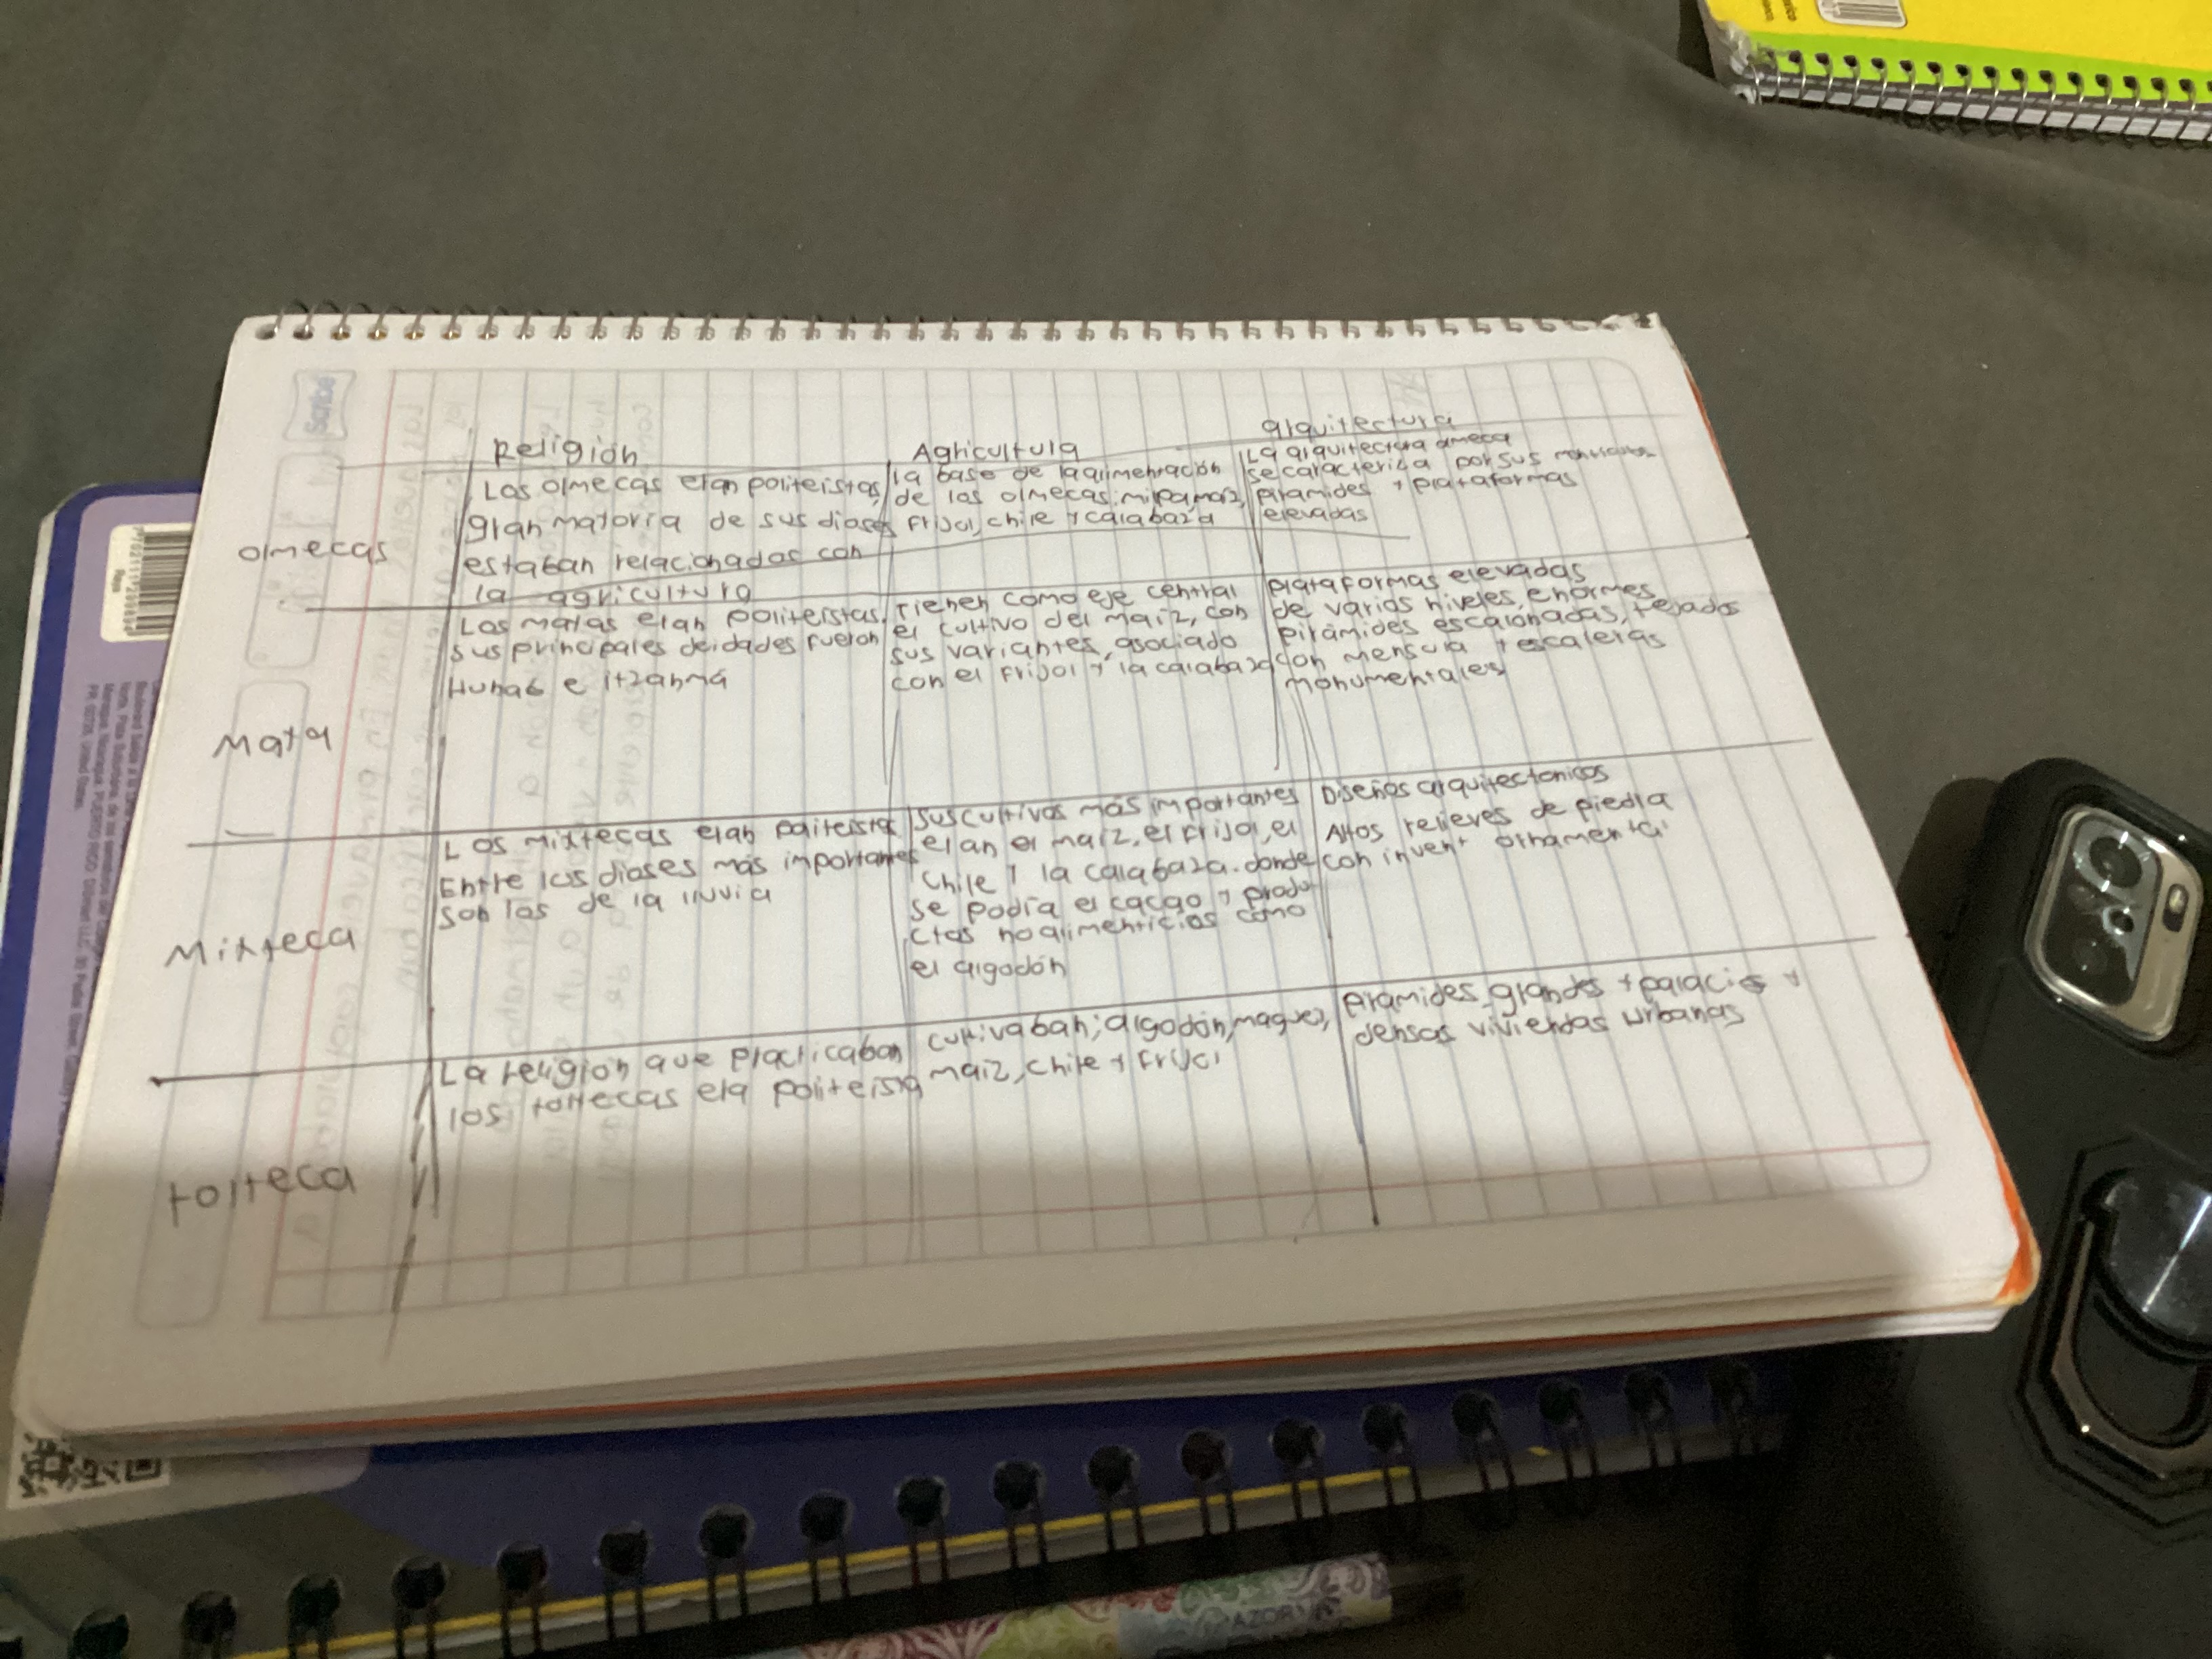 Religión
Agricultura
arquitectura
olmecas
Los olmecas eran politeistas,
gran mayoria de sus dioses
estaban relacionados con
la agricultura
la base de la alimentación
de los olmecas: milpa maíz,
frijol, chile y calabaza
La arquitectura omeca
se caracteriza por sus
piramides y plataformas
elevadas
Maya
Los mayas eran politeistas,
sus principales deidades fueron
Hunab e itzanmá
Tienen como eje central
el cultivo del maíz, con
sus variantes, asociado
con el frijol y la calabaza
plataformas elevadas
de varios niveles, enormes
pirámides escalonadas, tejados
con mensula y escaleras
monumentales
Mixteca
Los mixtecas eran politeista
Entre los dioses más importantes
son los de la lluvia
Sus cultivos más importantes
eran el maíz, el frijol, el
chile y la calabaza. donde
se podía el cacao y produ
ctos no alimenticios como
el algodón
Diseños arquitectonicos
Altos relieves de piedra
con invent ornamental
tolteca
La religión que practicaban
los toltecas era politeista
cultivaban; algodón, maguez,
maíz, chile y frijol
piramides grandes y palacios y
densas viviendas urbanas
Scribe